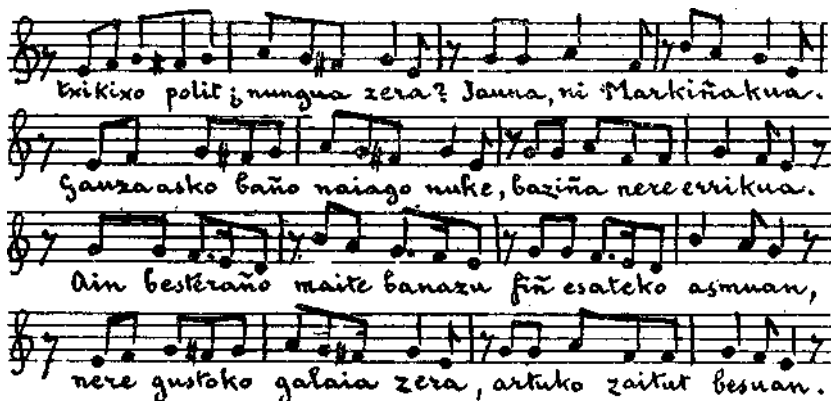 txikixo polit; nungua zera? Jauna, ni Markiñakua.
Gauza asko baño naiago nuke, baziña nere errikua.
Ain besteraño maite banazu fiñ esateko asmuan,
nere gustoko galaia zera, artuko zaitut besuan.